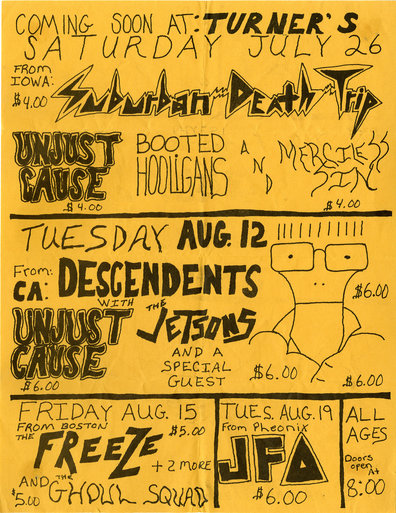 COMING SOON AT: TURNER'S
SATURDAY JULY 26
FROM IOWA:
$4.00
Suburban Death Trip
UNJUST CAUSE
$4.00
BOOTED HOOLiGANS
AND
MERCILESS SIN
$4.00
TUESDAY AUG. 12
From: CA: DESCENDENTS
$6.00
WITH THE JETSONS
UNJUST CAUSE
$6.00
AND A SPECIAL GUEST
$6.00
$6.00
FRIDAY AUG. 15
FROM BOSTON $5.00
THE FREEZE
+ 2 MORE
AND THE GHOUL SQUAD
$5.00
TUES. AUG. 19
From Pheonix
JFA
$6.00
ALL AGES
Doors open At
8:00